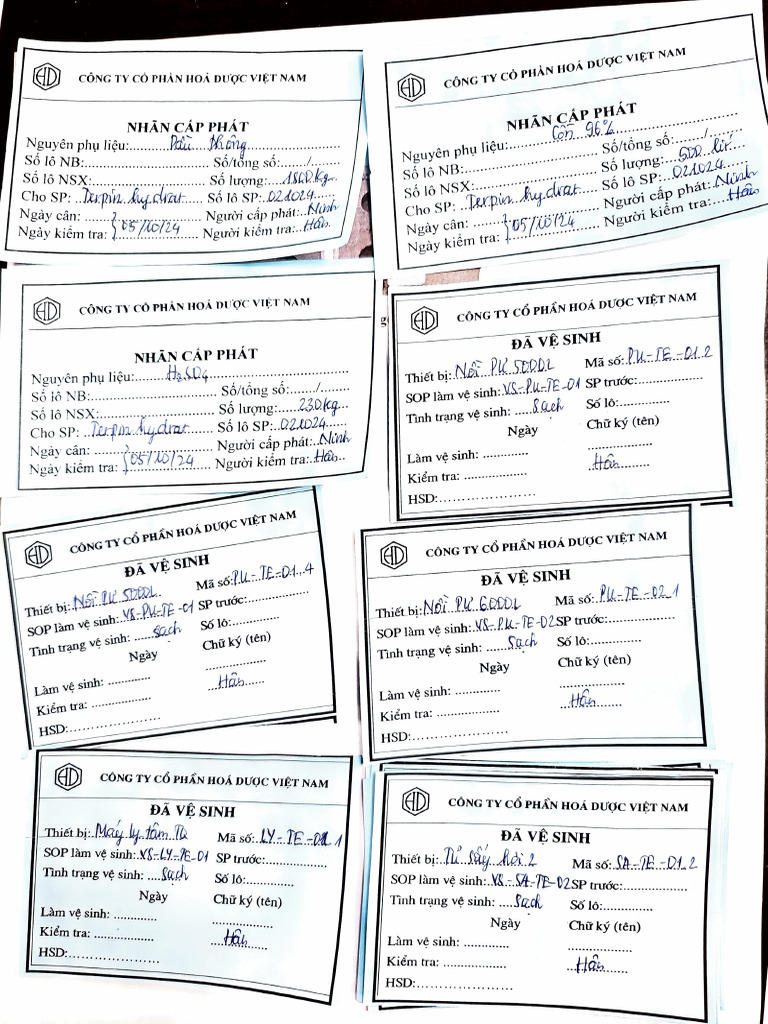 CÔNG TY CỔ PHẦN HOÁ DƯỢC VIỆT NAM
NHÃN CẤP PHÁT
Nguyên phụ liệu: Dầu thông
Số lô NB: Số/tổng số: /
Số lô NSX: Số lượng: 1840 kg
Cho SP: Terpin hydrat Số lô SP: 021024
Ngày cân: Người cấp phát: Ninh
Ngày kiểm tra: 05/10/24 Người kiểm tra: Hân
CÔNG TY CỔ PHẦN HOÁ DƯỢC VIỆT NAM
NHÃN CẤP PHÁT
Nguyên phụ liệu: Cồn 96%
Số lô NB: Số/tổng số: /
Số lô NSX: Số lượng: 500 lít
Cho SP: Terpin hydrat Số lô SP: 021024
Ngày cân: Người cấp phát: Ninh
Ngày kiểm tra: 05/10/24 Người kiểm tra: Hân
CÔNG TY CỔ PHẦN HOÁ DƯỢC VIỆT NAM
NHÃN CẤP PHÁT
Nguyên phụ liệu: H2SO4
Số lô NB: Số/tổng số: /
Số lô NSX: Số lượng: 230 kg
Cho SP: Terpin hydrat Số lô SP: 021024
Ngày cân: Người cấp phát: Ninh
Ngày kiểm tra: 05/10/24 Người kiểm tra: Hân
CÔNG TY CỔ PHẦN HOÁ DƯỢC VIỆT NAM
ĐÃ VỆ SINH
Thiết bị: Nồi PƯ 5000L Mã số: PƯ-TE-01.2
SOP làm vệ sinh: VS-PƯ-TE-01 SP trước:
Tình trạng vệ sinh: Sạch Số lô:
Ngày Chữ ký (tên)
Làm vệ sinh:
Kiểm tra: Hân
HSD:
CÔNG TY CỔ PHẦN HOÁ DƯỢC VIỆT NAM
ĐÃ VỆ SINH
Thiết bị: Nồi PƯ 5000L Mã số: PƯ-TE-01.4
SOP làm vệ sinh: VS-PƯ-TE-01 SP trước:
Tình trạng vệ sinh: Sạch Số lô:
Ngày Chữ ký (tên)
Làm vệ sinh:
Kiểm tra: Hân
HSD:
CÔNG TY CỔ PHẦN HOÁ DƯỢC VIỆT NAM
ĐÃ VỆ SINH
Thiết bị: Nồi PƯ 6000L Mã số: PƯ-TE-02.1
SOP làm vệ sinh: VS-PƯ-TE-02 SP trước:
Tình trạng vệ sinh: Sạch Số lô:
Ngày Chữ ký (tên)
Làm vệ sinh:
Kiểm tra: Hân
HSD:
CÔNG TY CỔ PHẦN HOÁ DƯỢC VIỆT NAM
ĐÃ VỆ SINH
Thiết bị: Máy ly tâm Mã số: LY-TE-01.1
SOP làm vệ sinh: VS-LY-TE-01 SP trước:
Tình trạng vệ sinh: Sạch Số lô:
Ngày Chữ ký (tên)
Làm vệ sinh:
Kiểm tra: Hân
HSD:
CÔNG TY CỔ PHẦN HOÁ DƯỢC VIỆT NAM
ĐÃ VỆ SINH
Thiết bị: Tủ sấy hơi 2 Mã số: SA-TE-01.2
SOP làm vệ sinh: VS-SA-TE-02 SP trước:
Tình trạng vệ sinh: Sạch Số lô:
Ngày Chữ ký (tên)
Làm vệ sinh:
Kiểm tra: Hân
HSD: